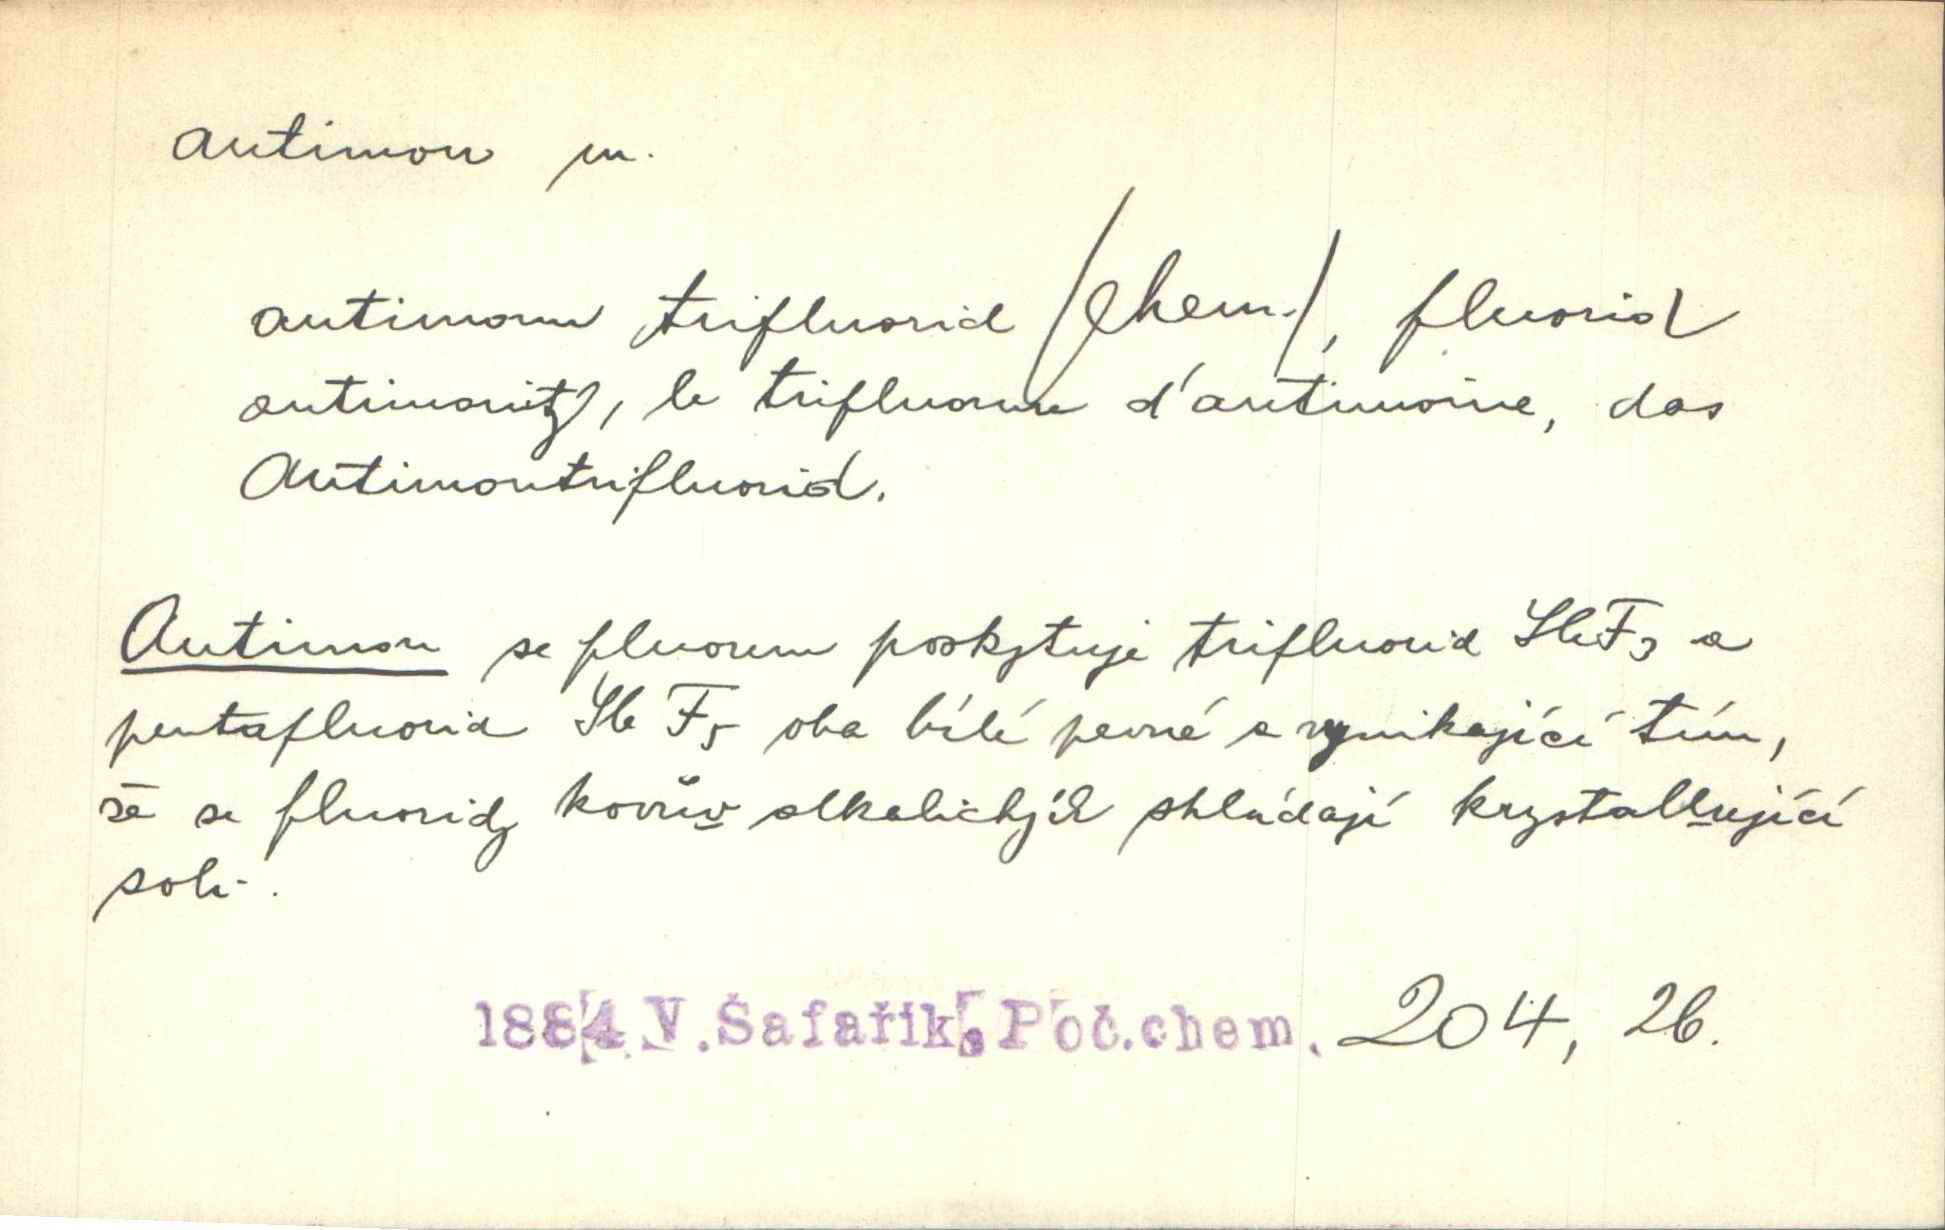 antimon m.
antimonu trifluorid /chem./, fluorid
antimonitý, le trifluorure d'antimoine, das
Antimontrifluorid.
Antimon se fluorem poskytuje trifluorid SbF3 a
pentafluorid SbF5 oba bílé pevné a vynikající tím,
že se fluoridy kovův alkalických skládají krystallující
soli.
1884 V. Šafařík, Poč.chem. 204, 26.